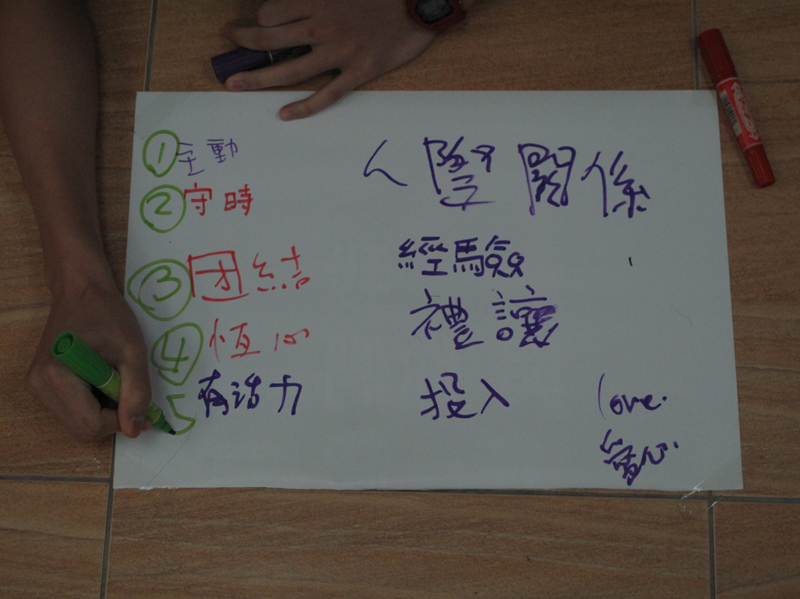 ①主動
②守時
③团結
④恆心
5有活力
人際關係
經驗
禮讓
投入
love.
愛心